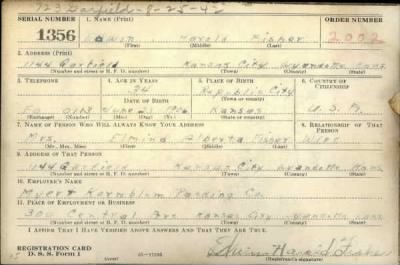 723 Garfield-8-25-42
SERIAL NUMBER 1. NAME (Print) ORDER NUMBER
1356 Edwin Harold Fisher 2002
(First) (Middle) (Last)
2. ADDRESS (Print)
1144 Garfield Kansas City Wyandotte Kans
(Number and street or R. F. D. number) (Town) (County) (State)
3. TELEPHONE 4. AGE IN YEARS 5. PLACE OF BIRTH 6. COUNTRY OF CITIZENSHIP
34 Republic City
DATE OF BIRTH (Town or county)
Kansas U. S. A.
(Exchange) (Number) (Mo.) (Day) (Yr.) (State or country)
7. NAME OF PERSON WHO WILL ALWAYS KNOW YOUR ADDRESS 8. RELATIONSHIP OF THAT PERSON
Mrs. Alberta Fisher Wife
(Mr., Mrs., Miss) (First) (Middle) (Last)
9. ADDRESS OF THAT PERSON
1144 Garfield Kansas City Wyandotte Kans
(Number and street or R. F. D. number) (Town) (County) (State)
10. EMPLOYER'S NAME
Myer Kornblum Packing Co.
11. PLACE OF EMPLOYMENT OR BUSINESS
Central Ave Kansas City Wyandotte Kans
(Number and street or R. F. D. number) (Town) (County) (State)
I AFFIRM THAT I HAVE VERIFIED ABOVE ANSWERS AND THAT THEY ARE TRUE.
REGISTRATION CARD
D. S. S. Form 1 Edwin Harold Fisher
(Registrant's signature)